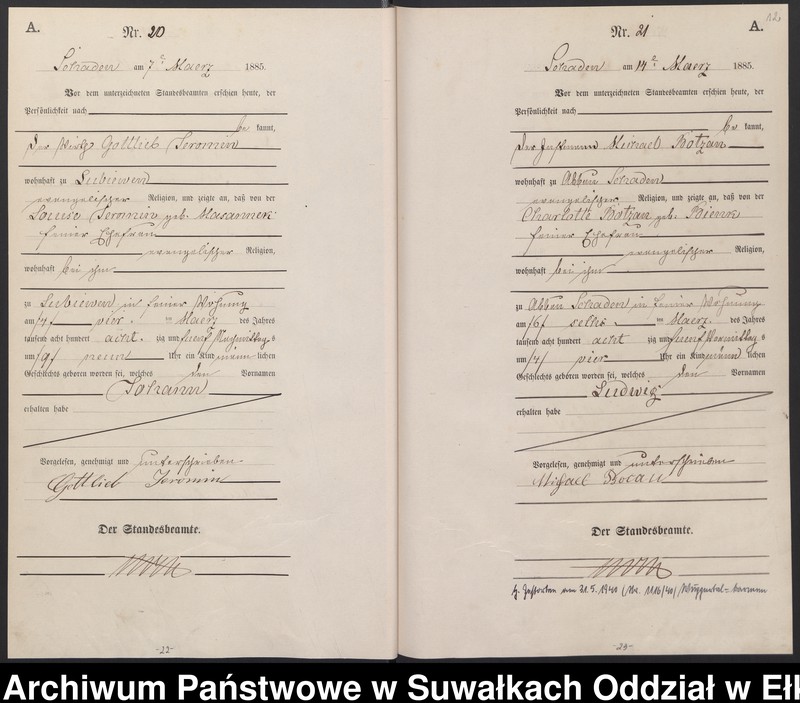 A.
Nr. 20
Schaden am 7ᵗ Maerz 1885.
Vor dem unterzeichneten Standesbeamten erschien heute, der
Persönlichkeit nach
be kannt,
der Wirth Gottlieb Jeromin
wohnhaft zu Lubiewen
evangelischer Religion, und zeigte an, daß von der
Louise Jeromin geb. Masannek
seiner Ehefrau
evangelischer Religion,
wohnhaft bei ihm
zu Lubiewen in seiner Wohnung
am /4/ vier. ten Maerz des Jahres
tausend acht hundert acht. zig und fuenf Nachmittag s
um /9/ neun Uhr ein Kind maenn lichen
Geschlechts geboren worden sei, welches den Vornamen
Johann
erhalten habe
Vorgelesen, genehmigt und unterschrieben
Gottlieb Jeromin
Der Standesbeamte.
-22-
12.
Nr. 21
A.
Schaden am 14ᵗ Maerz 1885.
Vor dem unterzeichneten Standesbeamten erschien heute, der
Persönlichkeit nach
be kannt,
der Instmann Michael Botzan
wohnhaft zu Abbau Schaden
evangelischer Religion, und zeigte an, daß von der
Charlotte Botzan geb. Bienk
seiner Ehefrau
evangelischer Religion,
wohnhaft bei ihm
zu Abbau Schaden in seiner Wohnung
am /6/ sechs. ten Maerz. des Jahres
tausend acht hundert acht zig und fuenf Vormittag s
um /4/ vier Uhr ein Kind männ lichen
Geschlechts geboren worden sei, welches den Vornamen
Ludwig
erhalten habe
Vorgelesen, genehmigt und unterschrieben
Michael Bocau
Der Standesbeamte.
gestorben am 21.5.1940 (Nr. 1116/40) Wuppertal-Barmen
-23-
Archiwum Państwowe w Suwałkach Oddział w Ełk